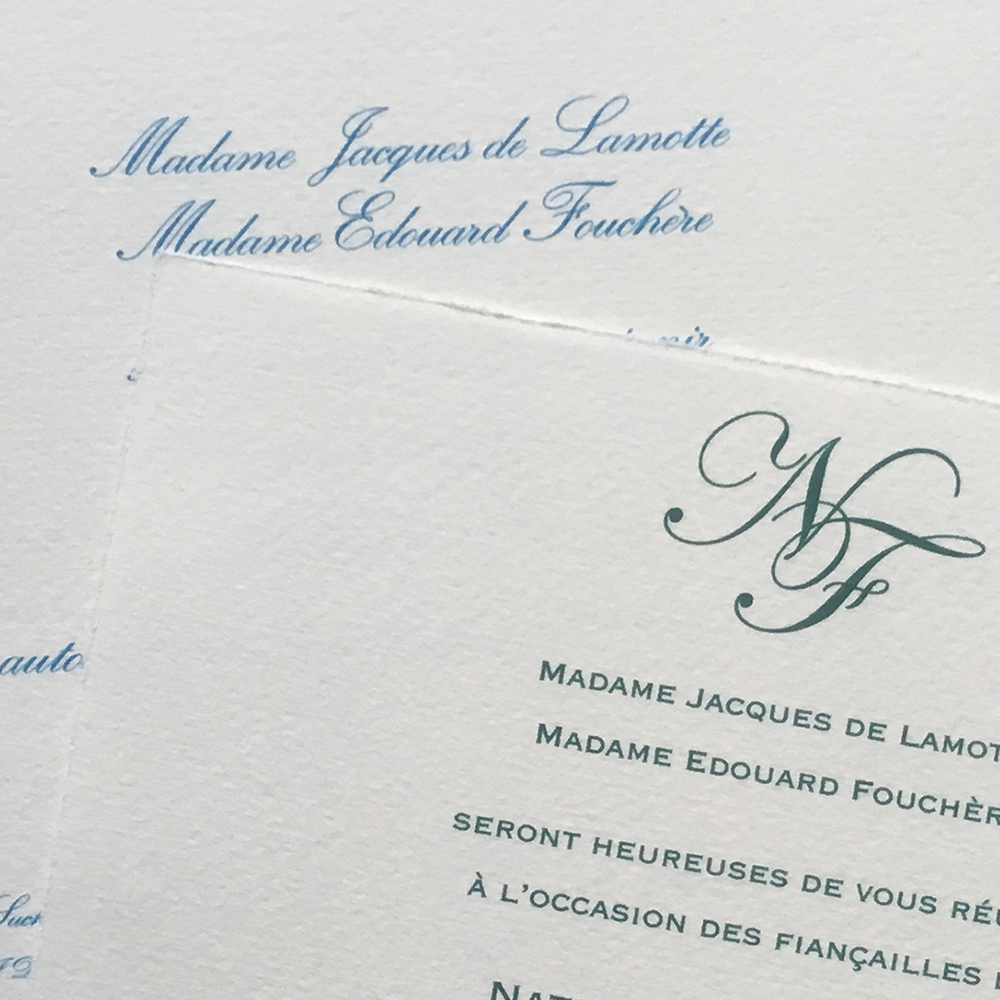 Madame Jacques de Lamotte
Madame Edouard Fouchère
auto
NF
MADAME JACQUES DE LAMOT
MADAME EDOUARD FOUCHÈR
SERONT HEUREUSES DE VOUS RÉU
À L'OCCASION DES FIANÇAILLES
NAT